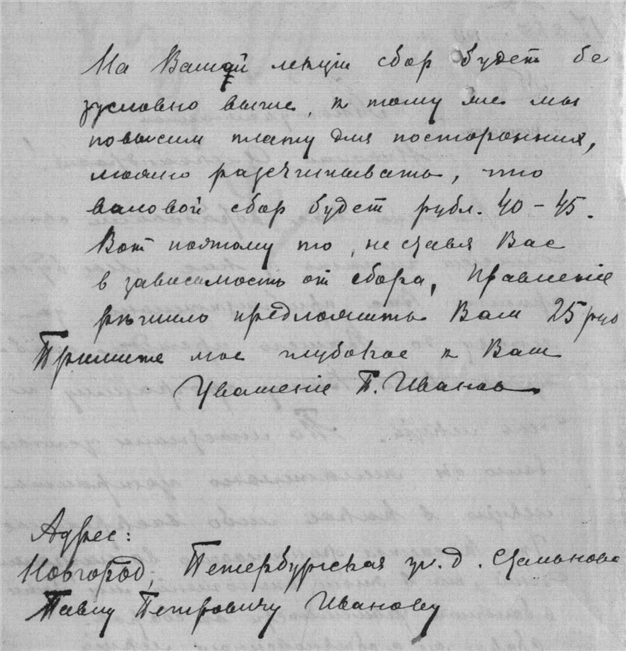 На Вашей лекціи сбор будет бе
зусловно выше, к тому же мы
повысим плату для посторонних,
можно разсчитывать, что
валовой сбор будет рубл. 40-45.
Вот поэтому то, не ставя Вас
в зависимость от сбора, Правленіе
рѣшило предложить Вам 25 руб
Примите мое глубокое к Вам
Уваженіе П. Иванов
Адрес:
Новгород, Петербургская ул. д.
Павлу Петровичу Иванову